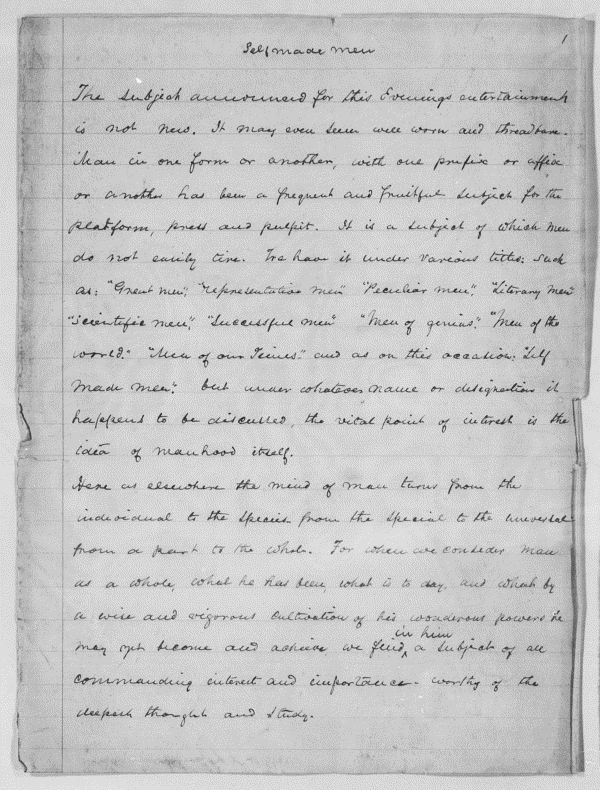 1
Self made men
The subject announced for this Evenings entertainment
is not new. It may even seem well worn and threadbare.
Man in one form or another, with one prefix or affix
or another has been a frequent and fruitful subject for the
platform, press and pulpit. It is a subject of which men
do not easily tire. We have it under various titles: such
as: "Great men", "representative men" "Peculiar men", "Literary men"
"scientific men", "Successful men" "Men of genius". "Men of the
world." "Men of our Times" and as on this occasion: "Self
made men". but under whatever name or designation it
happens to be discussed, the vital point of interest is the
idea of manhood itself.
Here as elsewhere the mind of man turns from the
individual to the species from the special to the universal
from a part to the whole. For when we consider man
as a whole, what he has been, what is to day, and what by
a wise and vigorous cultivation of his wonderous powers he
in him
may yet become and achieve we find ‸ a subject of all
commanding interest and importance - worthy of the
deepest thought and study.